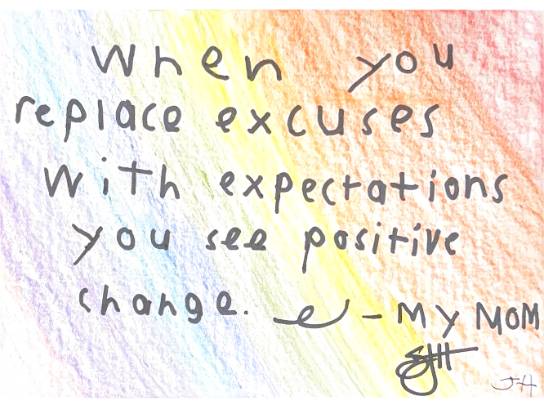 when you
replace excuses
with expectations
you see positive
change. - MY MOM
JH